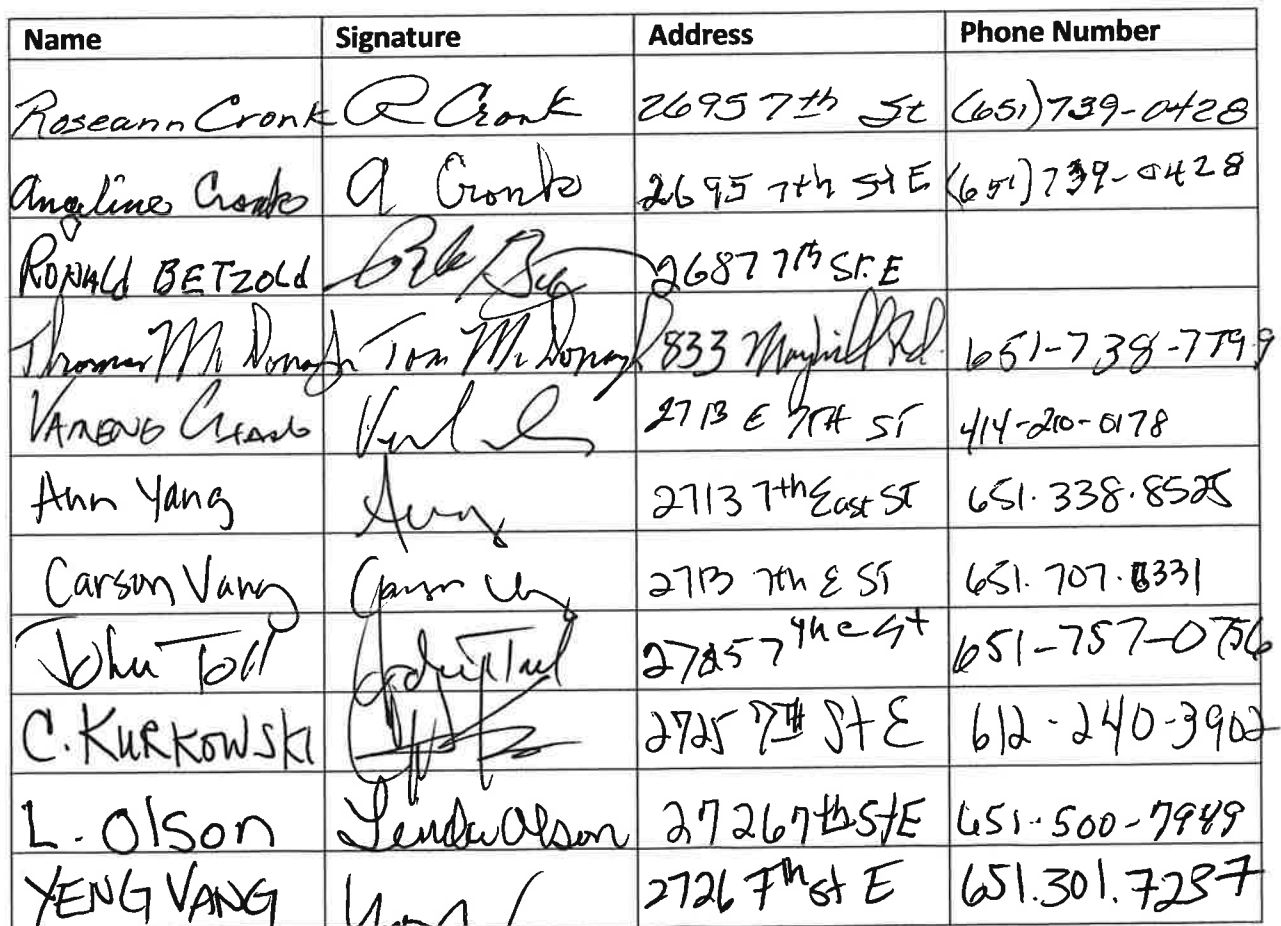 Name Signature Address Phone Number
Roseann Cronk R Cronk 2695 7th St (651)739-0428
Angeline Cronk A Cronk 2695 7th St E (651)739-0428
RONALd BETZOLd 2687 7th St. E
Thomas McDonagh Tom McDonagh 833 Mayhill Rd. 651-738-7799
2713 E 7TH ST 414-210-0178
Ann Yang 2713 7th East ST 651.338.8525
Carson Vang 2713 7th E ST 651.707.
John 651-757-0756
C. KURKOWSKI 2725 7TH St E 612-240-3902
L. Olson Linda Olson 2726 7th St E 651-500-7949
YENG VANG 2726 7th st E 651.301.7237